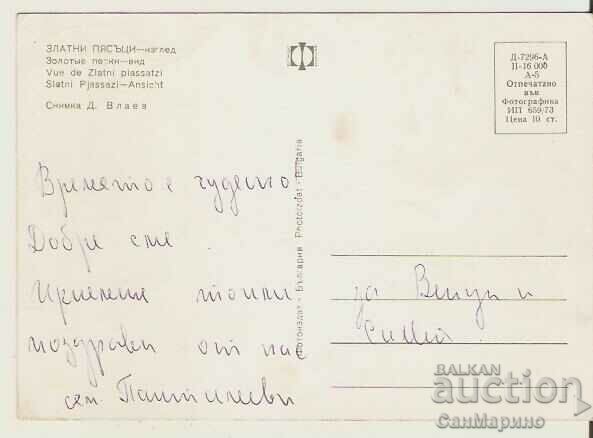 ЗЛАТНИ ПЯСЪЦИ—изглед
Золотые пески—вид
Vue de Zlatni piassatzi
Slatni Pjassazi—Ansicht
Снимка Д. Влаев
Д-7296-А
П-16 000
А-5
Отпечатано
във
Фотографика
ИП 659/73
Цена 10 ст.
Фотоиздат - България Photoizdat - Bulgaria
Времето е чудесно
Добре сме.
Приемете топли
поздрави от нас
сем.
за
BALKAN
auction
СанМарино